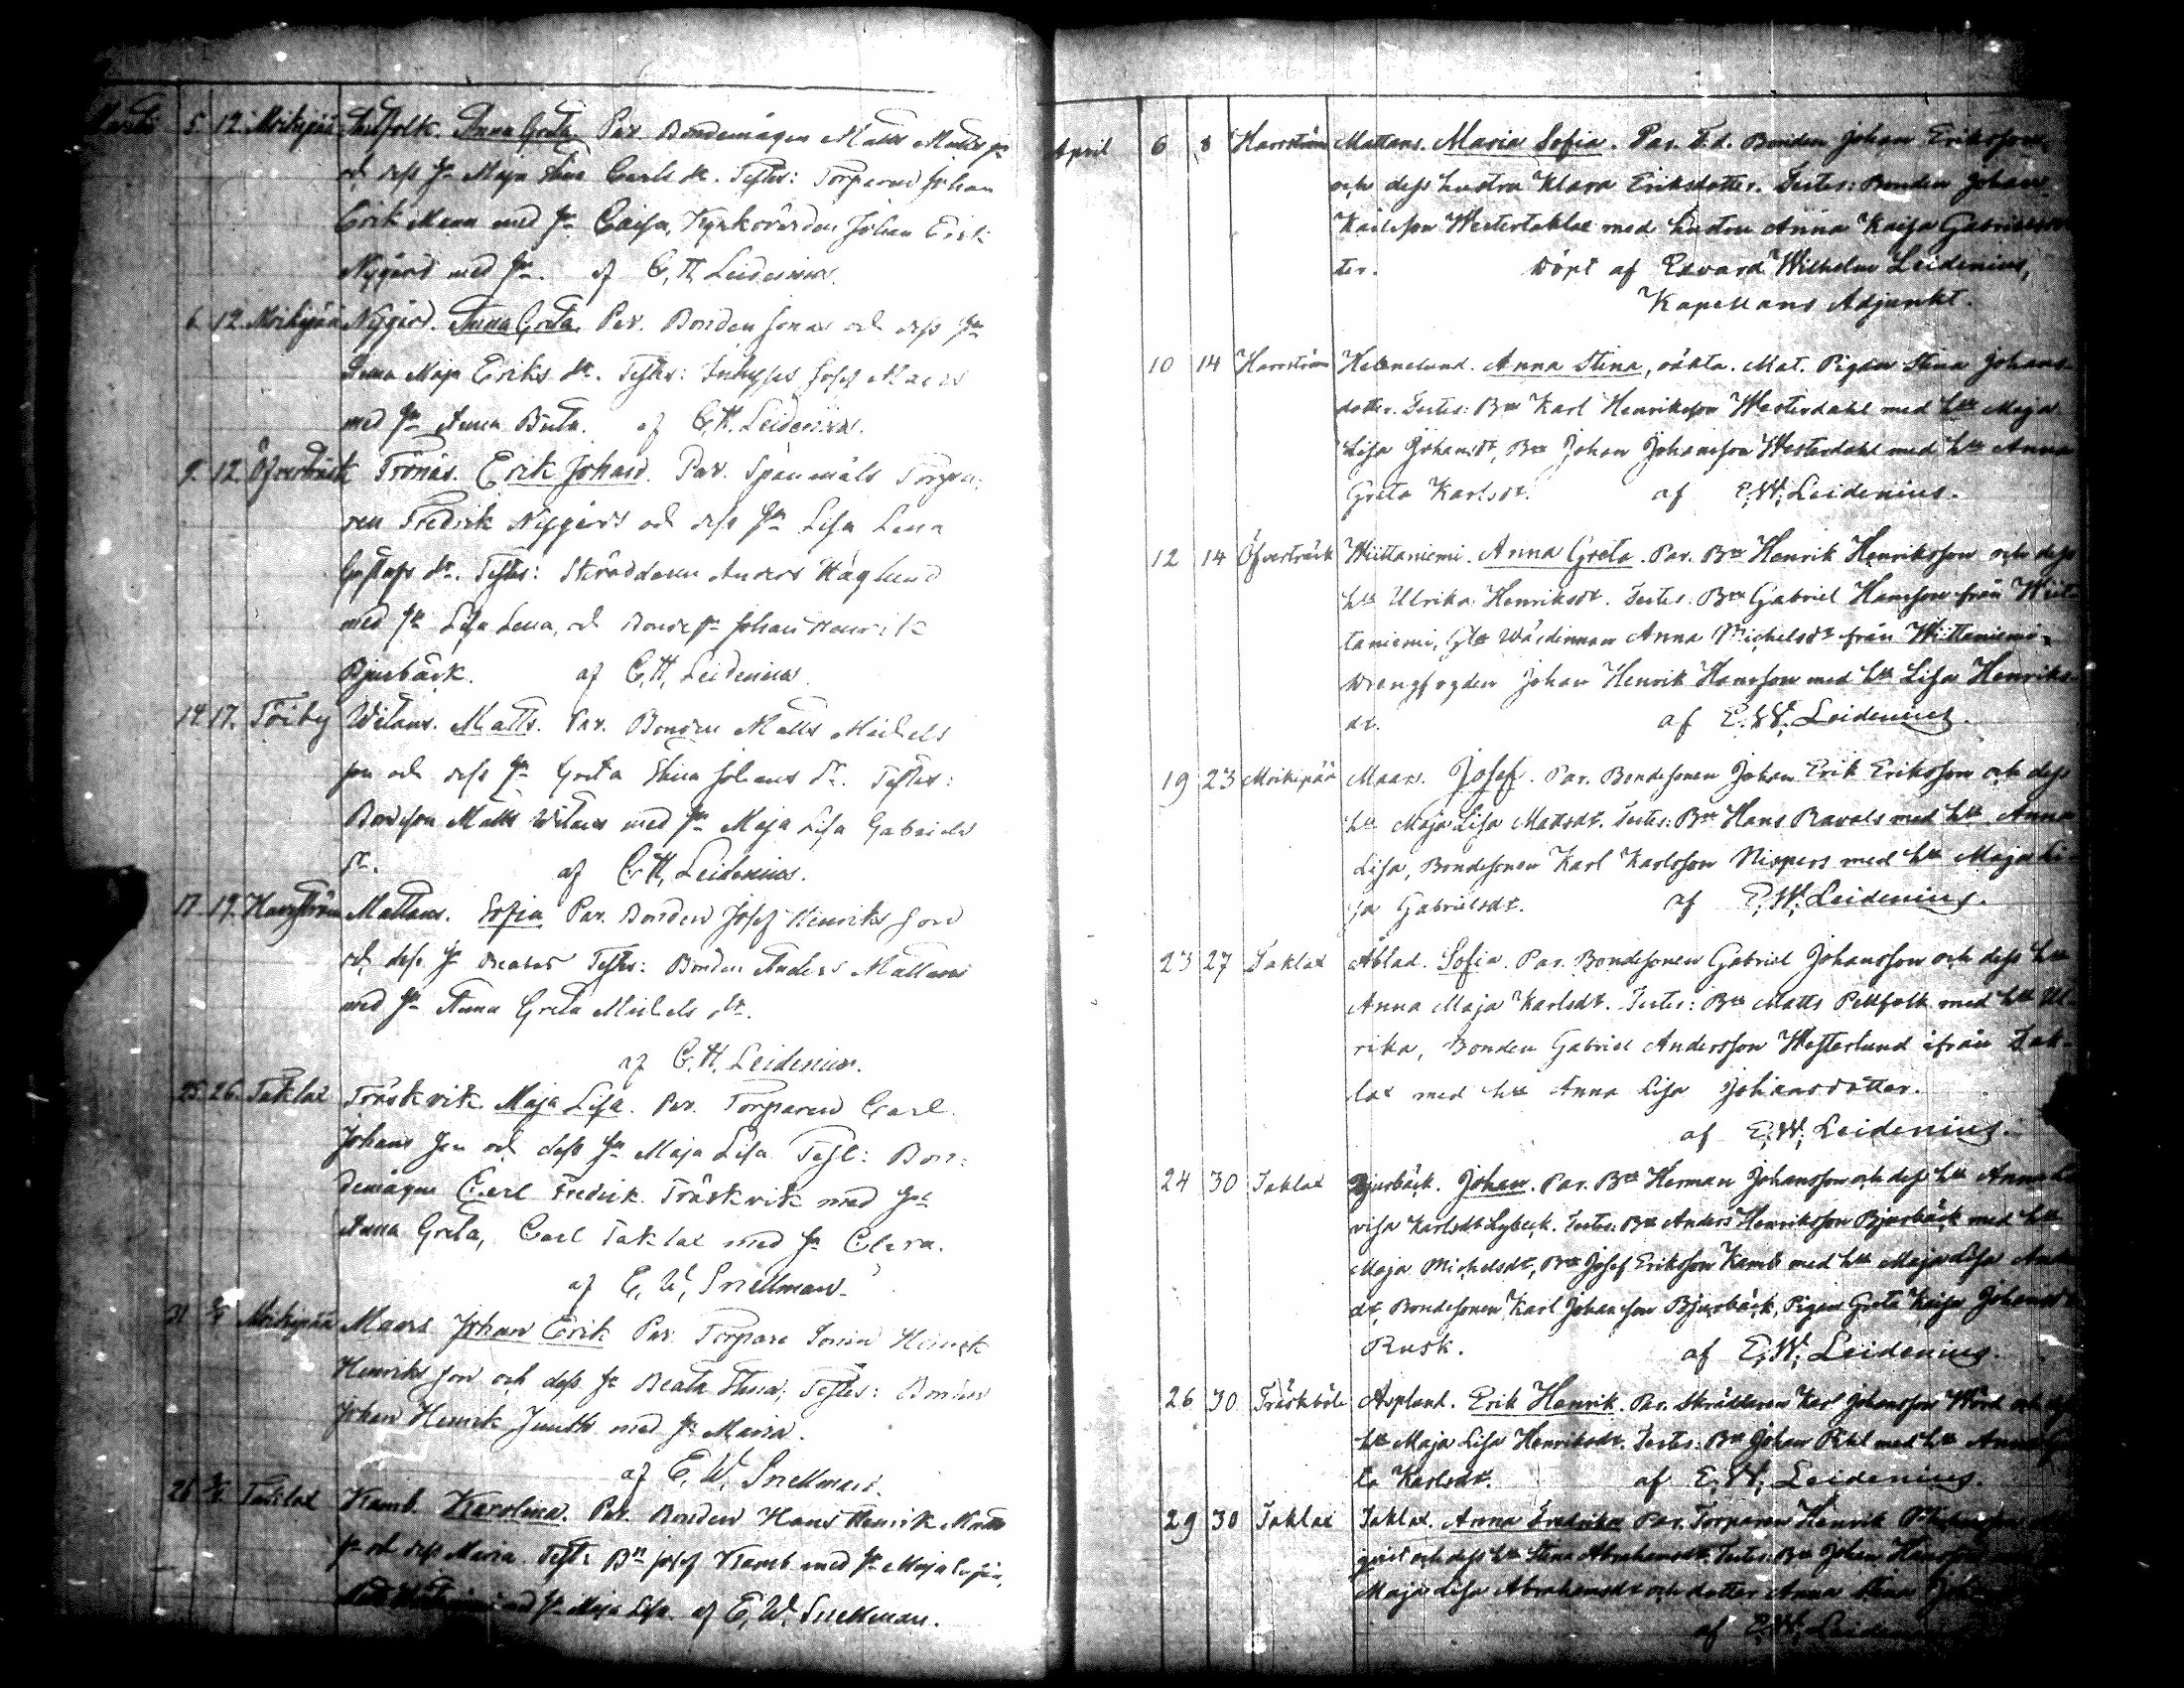 5 12 Moikipää Anna Greta. Par. Bondemågen Matts Matts son
och dess hu Maja Stina Carls dr. Testes: Torparen Johan
Erik Mann med hu Caisa, Kyrkovärden Johan Erik
Nygård med hu. af C. H. Leidenius.
6. 12. Moikipää Nygård. Anna Greta. Par. Bonden Jonas och dess hu
Lena Maja Eriks dr. Testes: Inhyses Josef Maers
med hu Anna Brita. af C. H. Leidenius.
9. 12 Öfverträsk Trönäs. Erik Johan. Par. Spanmåls Torpa-
ren Fredrik Nygård och dess hu Lisa Lena
Gustafs dr. Testes: Skräddaren Anders Häglund
med hu Lisa Lena, och Bondes. Johan Henrik
Bjurbäck. af C. H. Leidenius.
14. 17. Töiby Witans. Matts. Par. Bonden Matts Michels
son och dess hu Greta Stina Johans dr. Testes:
Bondeson Matts Witans med hu Maja Lisa Gabriels
dr. af C. H. Leidenius.
17. 19. Harrström Mattans. Sofia Par. Bonden Josef Henriks son
och dess hu Beata Testes: Bonden Anders Mattans
med hu Anna Greta Michels dr.
af C. H. Leidenius.
25. 26. Taklax Träskvik. Maja Lisa. Par. Torparen Carl
Johans son och dess hu Maja Lisa Test: Bon-
demågen Carl Fredrik Träskvik med hu
Anna Greta, Carl Taklax med hu Clara.
af E. W. Snellman.
31 2/4 Moikipää Maers Johan Erik Par. Torpare Sonen Henrik
Henriks son och dess hu Beata Stina, Testes: Bonden
Johan Henrik med hu Maria.
af E. W. Snellman.
28 Taklax Kamb. Karolina. Par. Bonden Hans Henrik Matts
son och dess Maria. Test: Bn Josef Kamb med hu Maja
med hu Maja Lisa. af E. W. Snellman.
April 6 8 Harrström Mattans. Maria Sofia. Par. F.d. Bonden Johan Eriksson
och dess hustru Klara Eriksdotter. Testes: Bonden Johan
Karlsson Westertaklax med hustru Anna Kajsa Gabrielsdot-
ter. Döpt af Edvard Wilhelm Leidenius,
Kapellans Adjunkt.
10 14 Harrström Helenelund. Anna Stina, oäkta. Mat. Pigan Stina Johans-
dotter. Testes: Bn Karl Henriksson Westerdahl med hu Maja
Lisa Johansdr, Bn Johan Johansson Westerdahl med hu Anna
Greta Karlsdr. af E. W. Leidenius.
12 14 Öfverträsk Wiittaniemi. Anna Greta. Par. Bn Henrik Henriksson och dess
hu Ulrika Henriksdr. Testes: Bn Gabriel Hansson från Wiit-
taniemi, Gla Wärdinnan Anna Michelsdr från Wiittaniemi,
Drengfogden Johan Henrik Hansson med hu Lisa Henriks-
dr. af E. W. Leidenius.
19 23 Moikipää Maars. Josef. Par. Bondesonen Johan Erik Eriksson och dess
hu Maja Lisa Mattsdr. Testes: Bn Hans Ravals med hu Anna
Lisa, Bondesonen Karl Karlsson Nispers med hu Maja Li-
sa Gabrielsdr. af E. W. Leidenius.
23 27 Taklax Åblad. Sofia. Par. Bondesonen Gabriel Johansson och dess hu
Anna Maja Karlsdr. Testes: Bn Matts Pettfolk med hu Ul-
rika, Bonden Gabriel Andersson Westerlund ifrån Tak-
lax med hu Anna Lisa Johansdotter.
af E. W. Leidenius.
24 30 Taklax Bjurbäck. Johan. Par. Bn Herman Johansson och dess hu Anna Lo
visa Karlsdr Lybeck. Testes: Bn Anders Henriksson Bjurbäck med hu
Maja Michelsdr, Bn Josef Eriksson Kamb med hu Maja Lisa
dr, Bondesonen Karl Johansson Bjurbäck, Pigan Greta Kajsa Johansdr
Rusk. af E. W. Leidenius.
26 30 Träskböle Asplund. Erik Henrik. Par. Skräddaren Karl Johansson Wörd och dess
hu Maja Lisa Henriksdr. Testes: Bn Johan med hu Anna
Karlsdr. af E. W. Leidenius.
29 30 Taklax Taklax. Anna Fredrika Par. Torparen Henrik
och dess hu Stina Abrahamsdr. Testes: Bn Johan Hansson
Maja Lisa Abrahamsdr och dotter Anna Stina
af E. W.